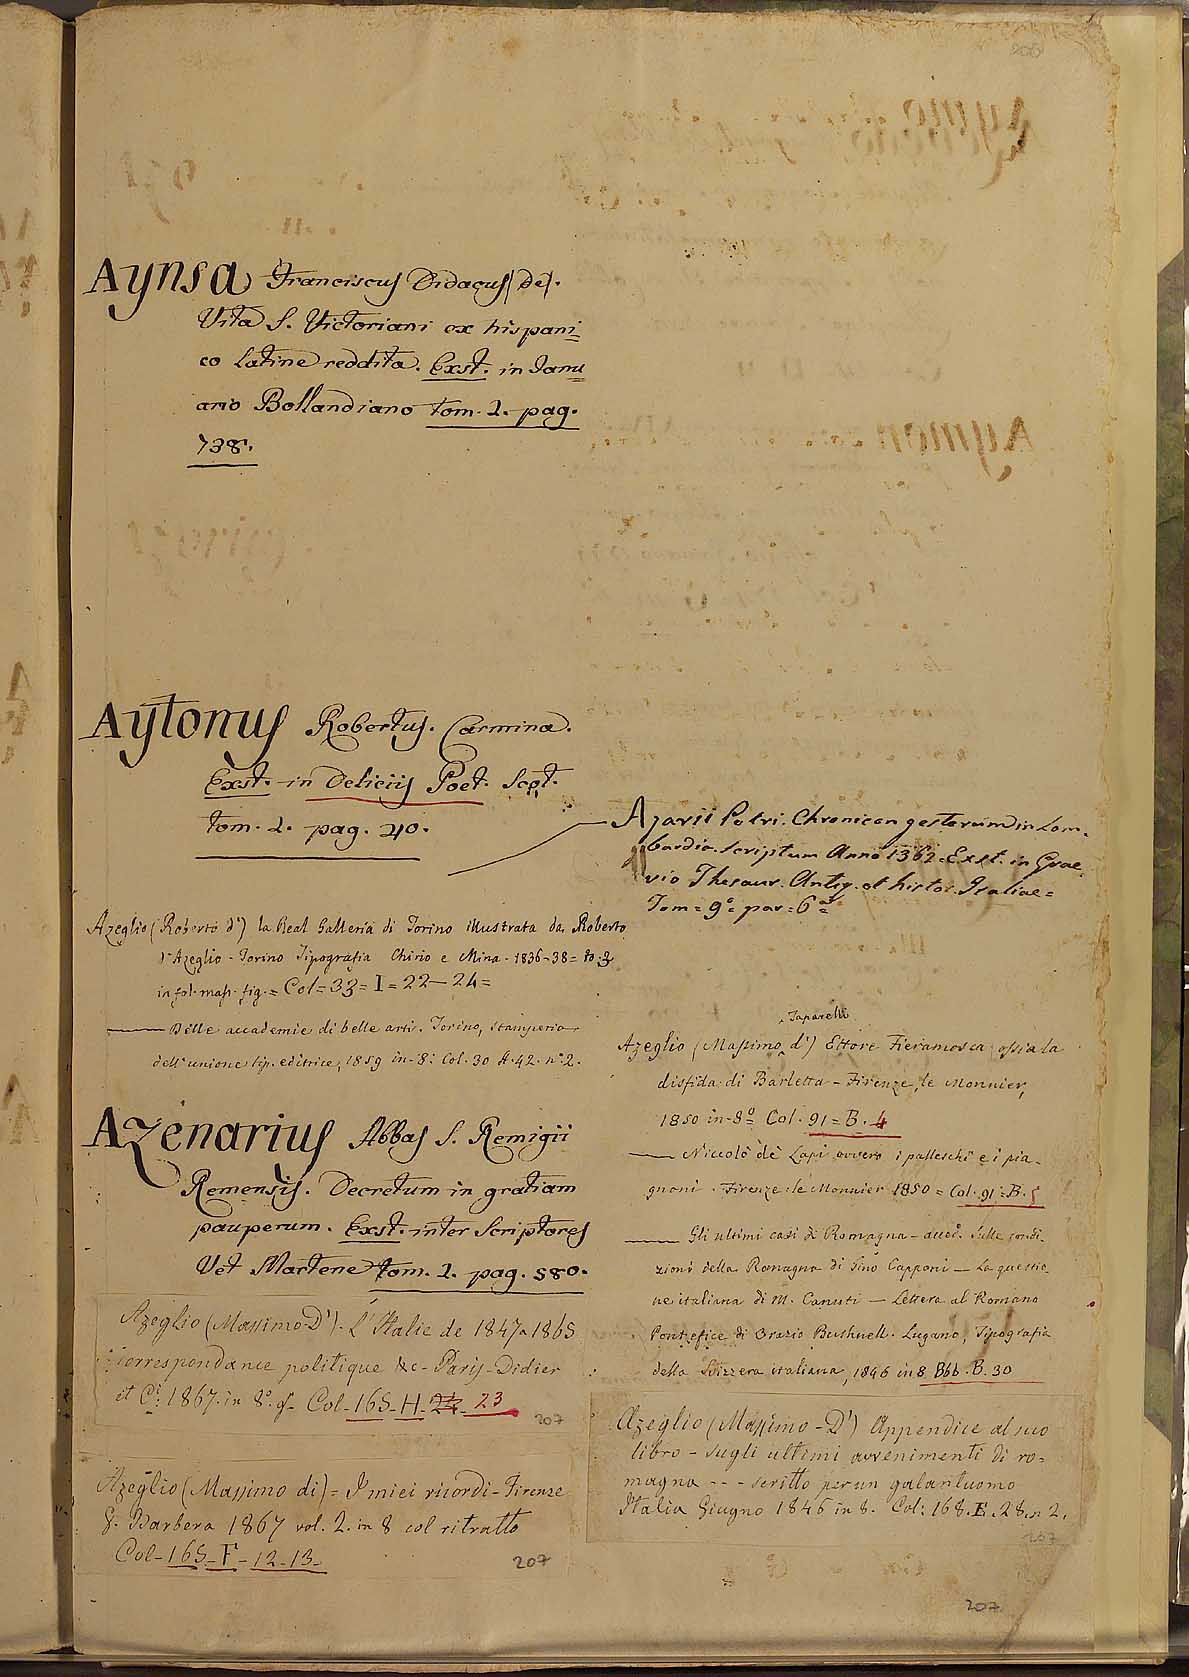 206
Aynsa Franciscus Didacus (de).
Vita S. Victoriani ex hispani=
co Latine reddita. Exst. in Janu=
ario Bollandiano tom. 2. pag.
738.
Aytonus Robertus. Carmina.
Exst. in Deliciis Poet. Scot.
tom. 1. pag. 40.
Azeglio (Roberto d') la Real Galleria di Torino illustrata da Roberto
d'Azeglio - Torino Tipografia Chirio e Mina - 1836-38 = to. 2
in fol. mass. fig. = Col = 33 = I = 22 — 24 =
——— Delle accademie di belle arti. Torino, Stamperia
dell'unione tip. editrice, 1859 in-8: Col. 30 A. 42. n.° 2.
Azenarius Abbas S. Remigii
Remensis. Decretum in gratiam
pauperum. Exst. inter Scriptores
Vet Martene tom. 1. pag. 580.
Azeglio (Massimo D') - L'Italie de 1847 a 1865
Correspondance politique &c - Paris - Didier
et C.i: 1867. in 8.° g.s Col - 165 - H - 24 - 23
207
Azeglio (Massimo di) = I miei ricordi - Firenze
G. Barbera 1867 vol. 2. in 8 col ritratto
Col - 165 - F - 12 - 13 -
207
Azarii Petri. Chronicon gestorum in Lom=
bardia scriptum Anno 1362 = Exst. in Grae
vio Thesaur. Antiq. et histor. Italiae =
Tom = 9.° = par = 6.a =
Taparelli
Azeglio (Massimo d') Ettore Fieramosca ossia la
disfida di Barletta - Firenze, le Monnier,
1850 in-8.° Col. 91 = B. 4
——— Niccolò dè Lapi ovvero i palleschi e i pia-
gnoni. Firenze. le Monnier 1850 = Col. 91 = B. 5
——— Gli ultimi casi di Romagna - Sulle condi-
zioni della Romagna di Gino Capponi — La questio
ne italiana di M. Canuti — Lettera al Romano
Pontefice di Orazio Bushnell. Lugano, Tipografia
della Svizzera italiana, 1846 in 8. Bbb. B. 30
Azeglio (Massimo - D') Appendice al suo
libro - sugli ultimi avvenimenti di ro=
magna - - - scritto per un galantuomo
Italia Giugno 1846 in 8. Col: 168. E. 28. n 2.
207
207